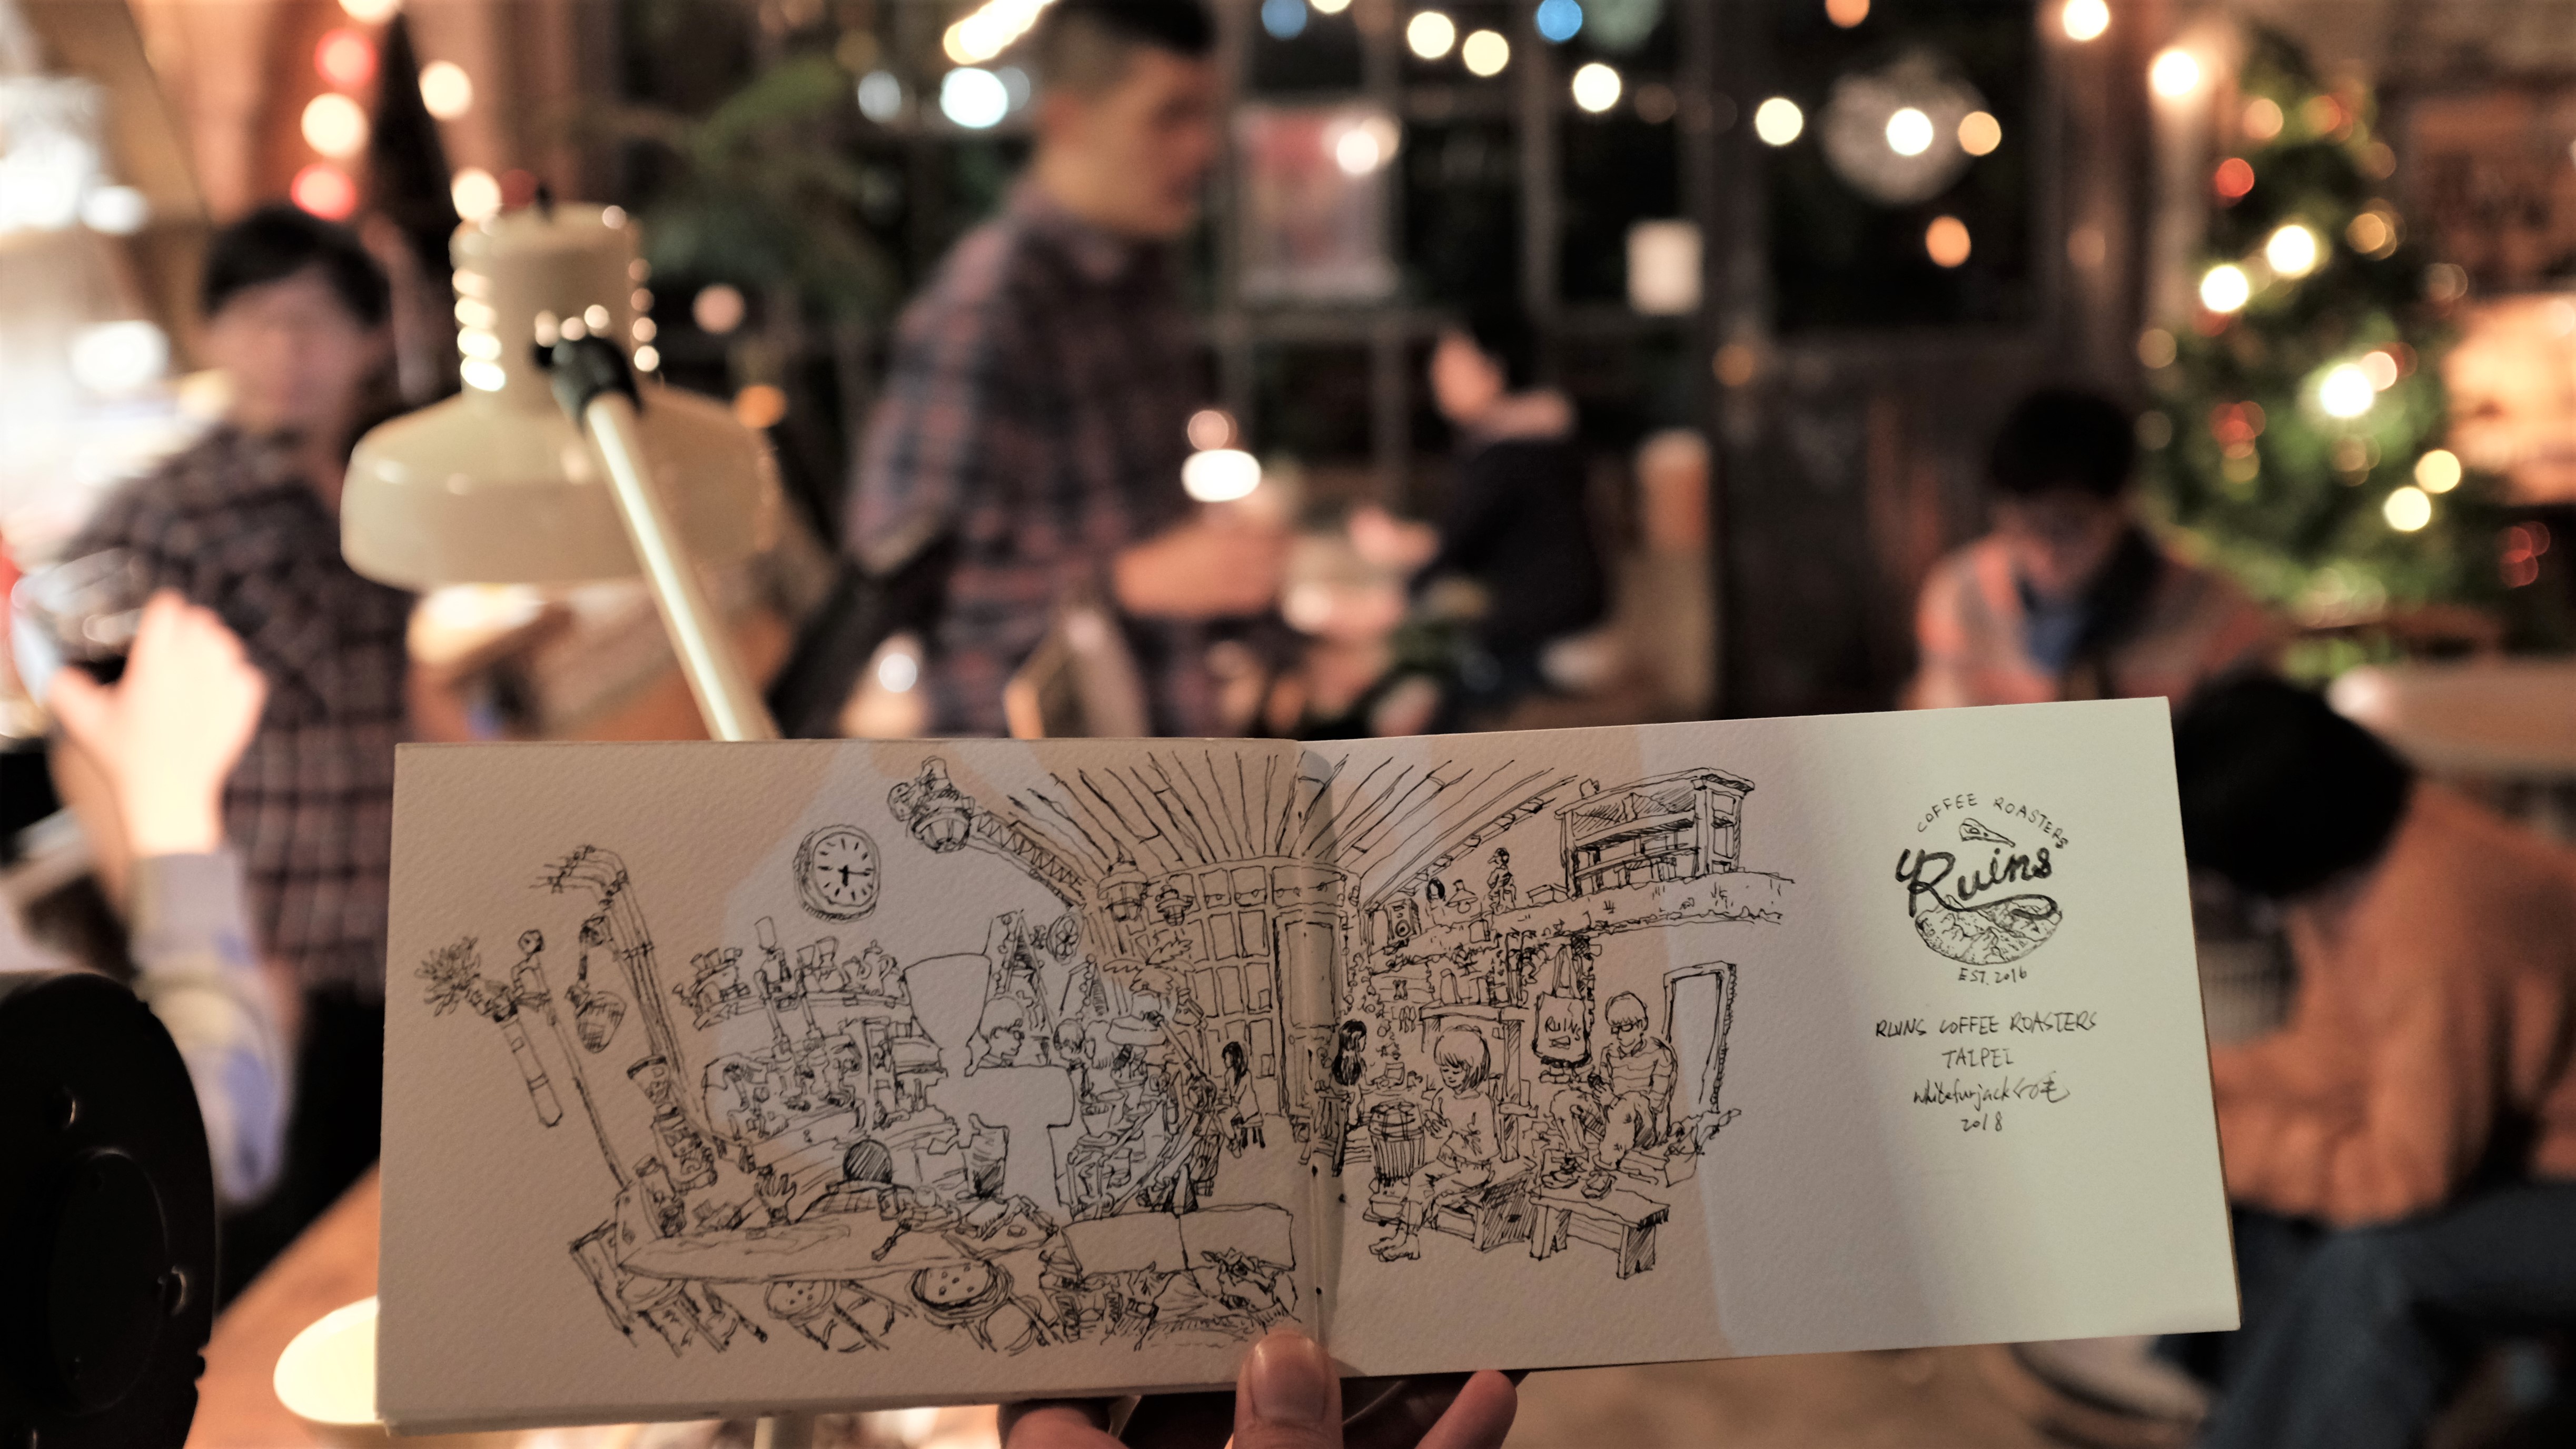 COFFEE ROASTERS
Ruins
EST. 2016
RUINS COFFEE ROASTERS
TAIPEI
whitefurjack 白毛
2018
RUINS